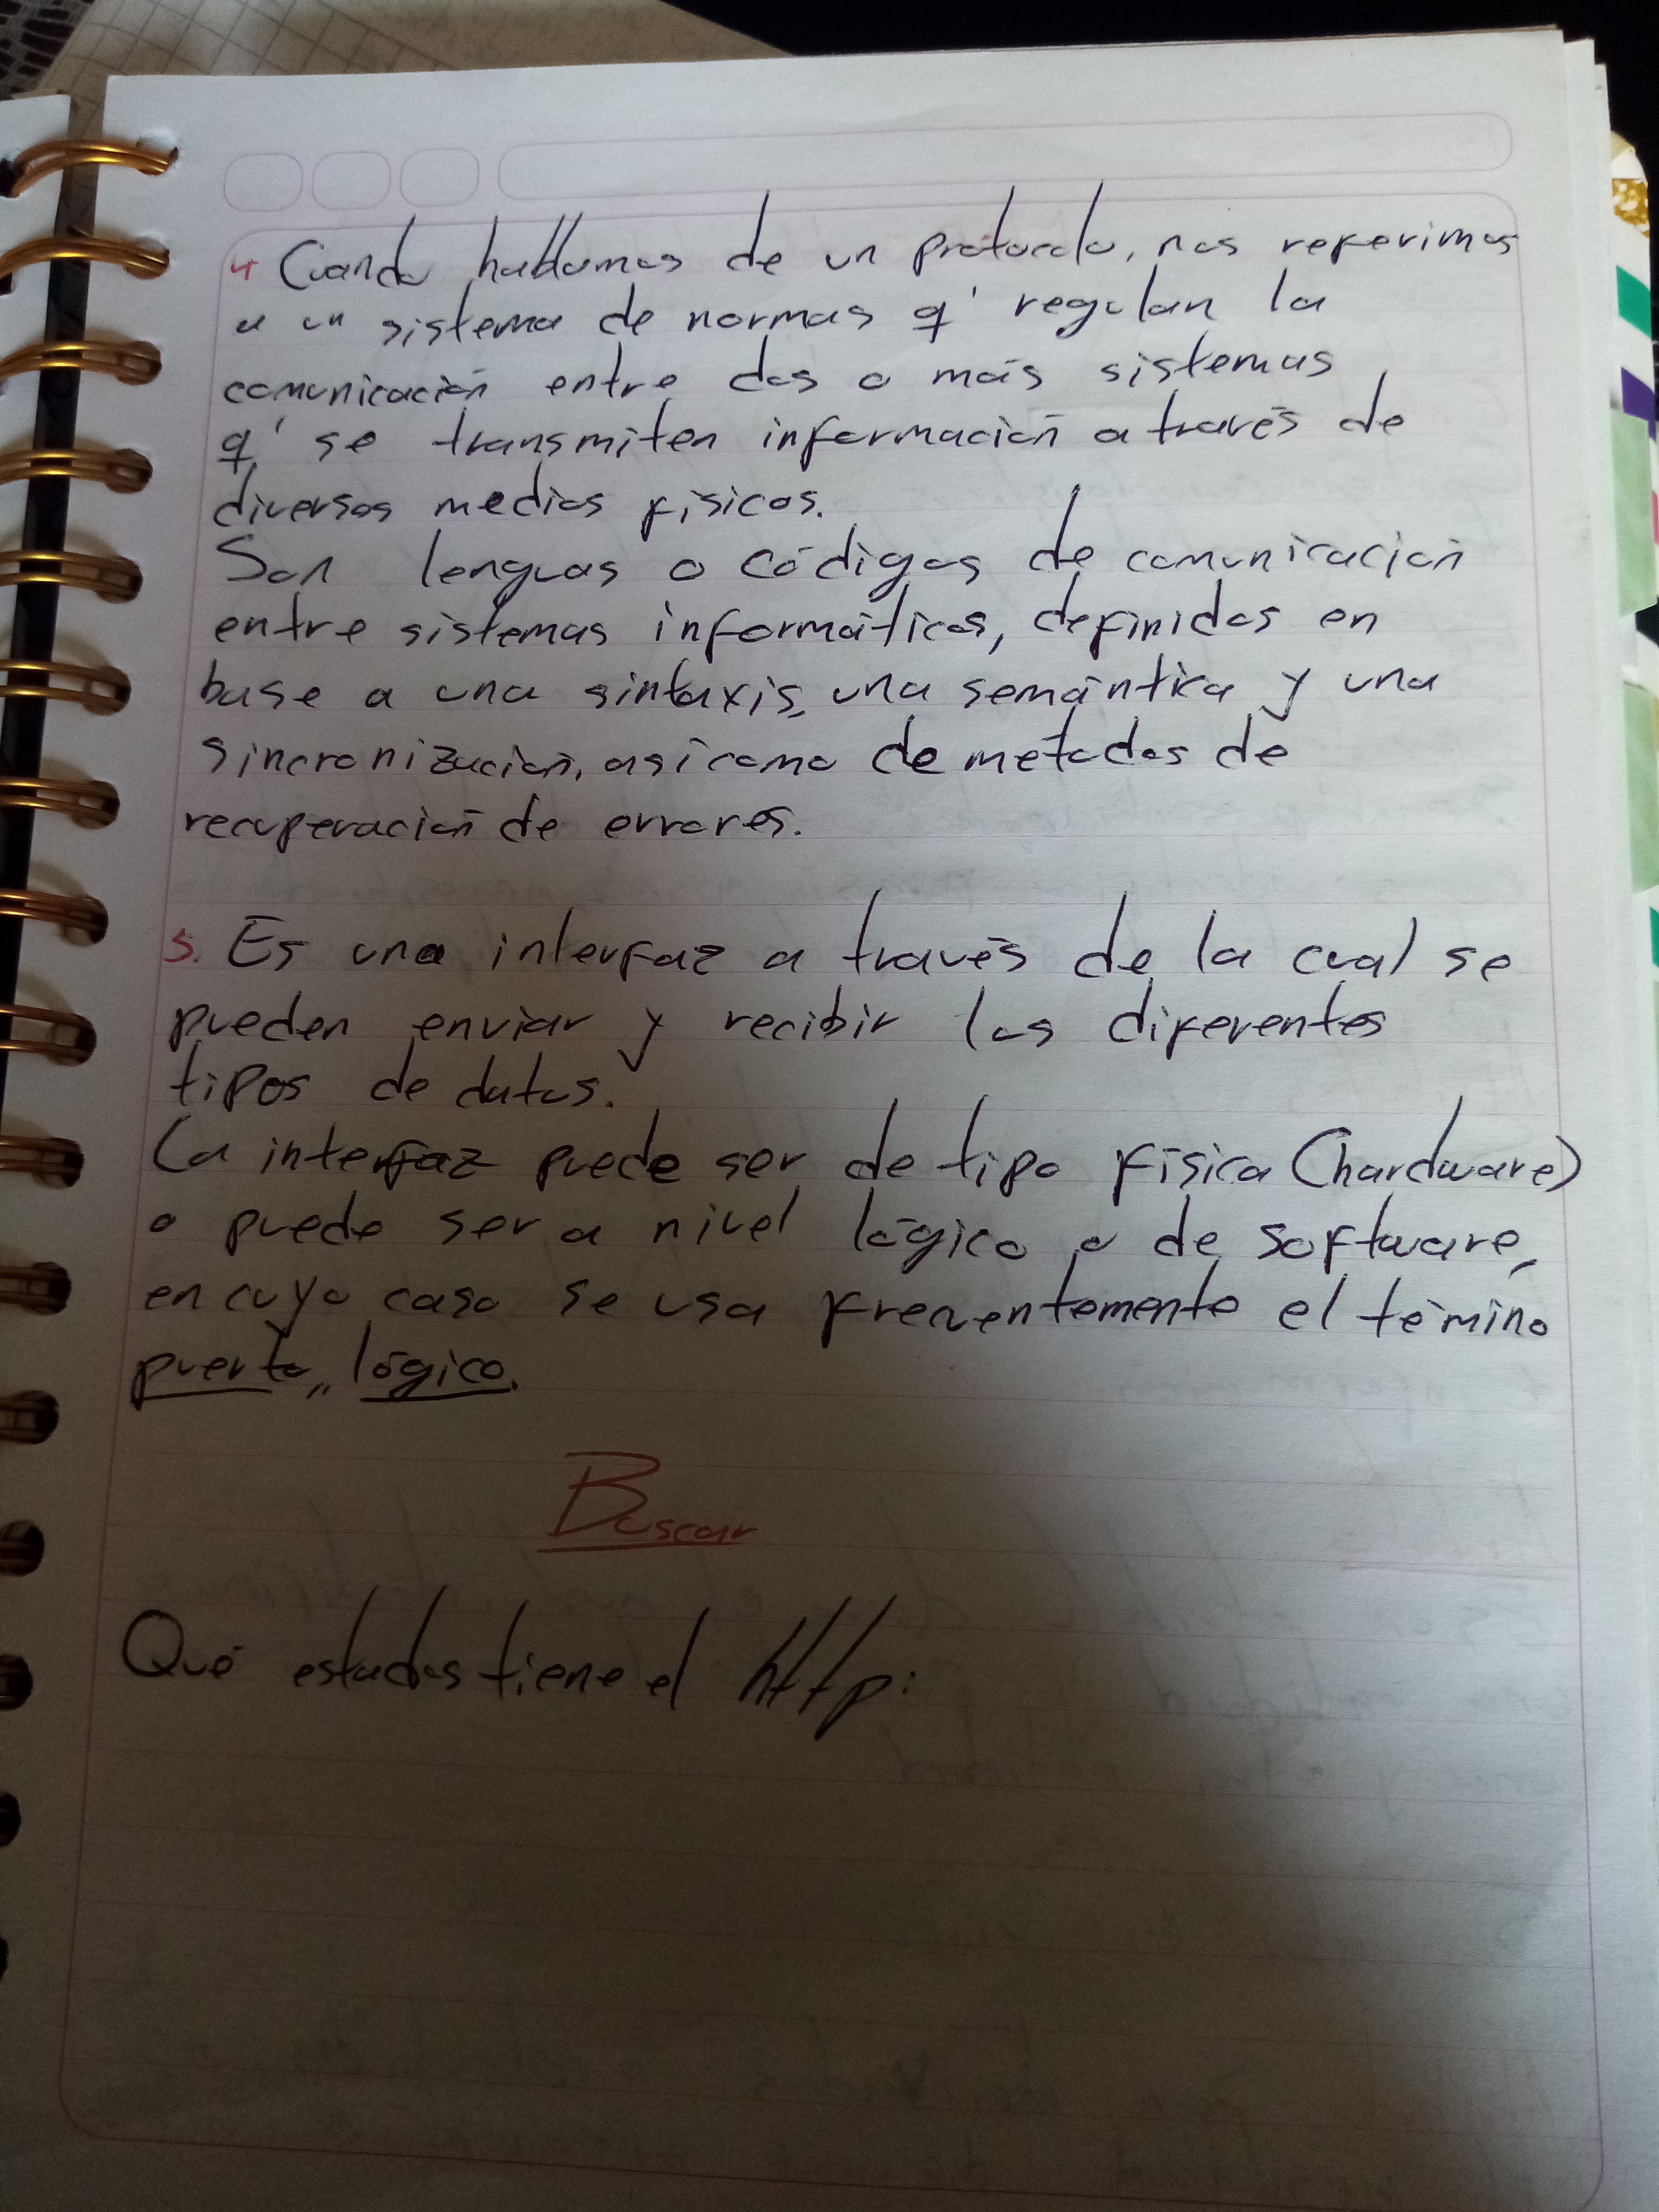 4 Cuando hablamos de un protocolo, nos referimos
a un sistema de normas q' regulan la
comunicación entre dos o más sistemas
q' se transmiten información a través de
diversos medios físicos.
Son lenguas o códigos de comunicación
entre sistemas informáticos, definidos en
base a una sintaxis, una semántica y una
sincronización, asi como de métodos de
recuperación de errores.
5. Es una interfaz a través de la cual se
pueden enviar y recibir los diferentes
tipos de datos.
La interfaz puede ser de tipo física (hardware)
o puede ser a nivel lógico o de software,
en cuyo caso se usa frecuentemente el témino
puerto,, lógico.
Buscar
Qué estados tiene el http: